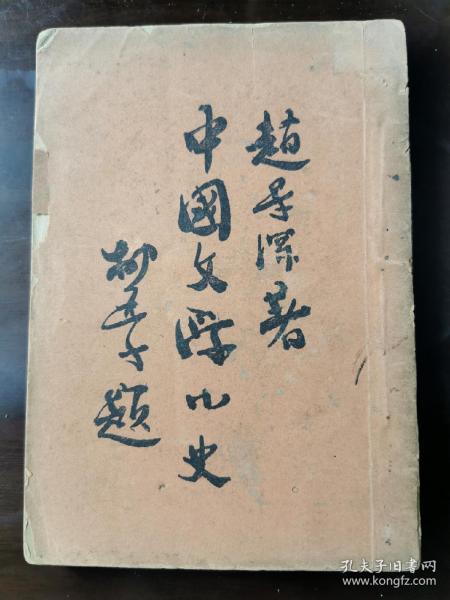 趙景深著
中國文學小史
柳亞子題
孔夫子旧书网
www.kongfz.com